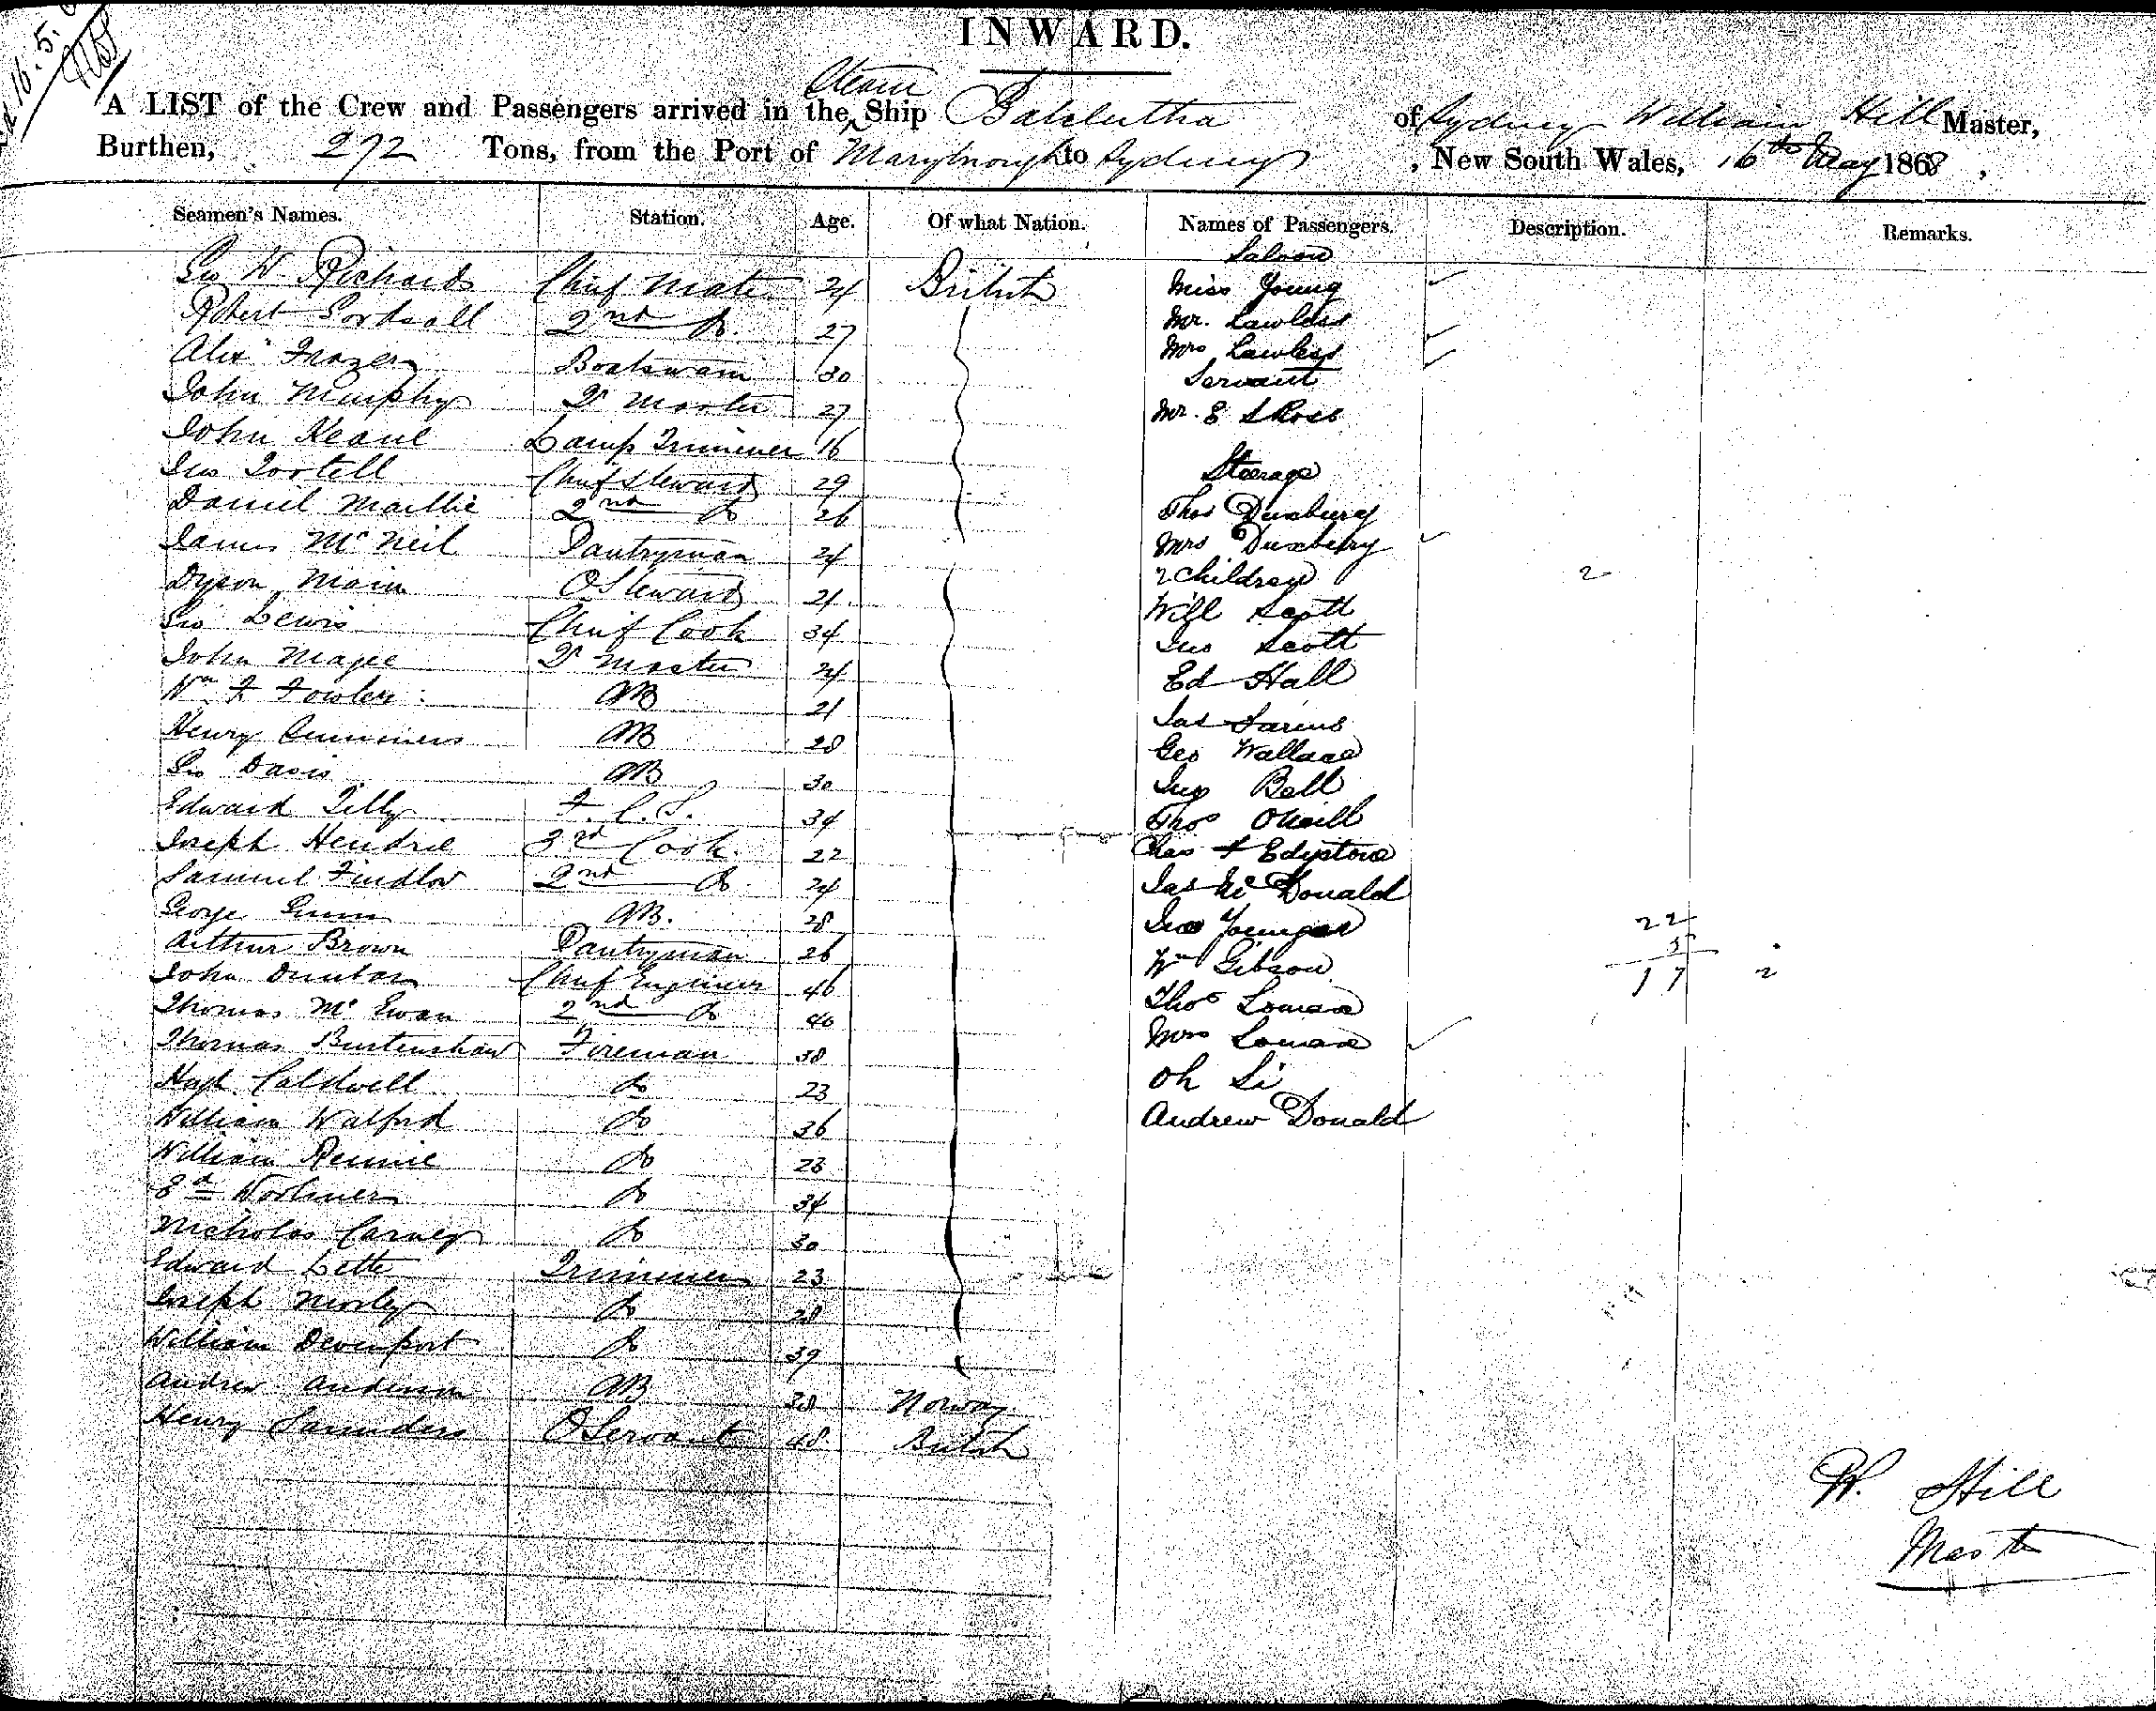 16.5.
INWARD.
Steam
A LIST of the Crew and Passengers arrived in the Ship Balclutha of Sydney William Hill Master,
Burthen, 272 Tons, from the Port of Marybrough to Sydney , New South Wales, 16th May 1868 ,
Seamen's Names. Station. Age. Of what Nation. Names of Passengers. Description. Remarks.
Saloon
Geo W Richards Chief Mate 24 British Miss Young
Robert Sordsall 2nd Do. 27 Mr. Lawless
Mrs Lawless
Alexr Frazer Boatswain 30 Servant
John Murphy Qr Master 27 Mr. E S Ross
John Keane Lamp Trimmer 16
Jno Tortell Chief Steward 29 Steerage
Daniel Maillie 2nd Do 26 Thos Duxbury
James McNeil Pantryman 24 Mrs Duxbury
Dyson Main O Steward 21 2 Children 2
Geo Lewis Chief Cook 34 Will Scott
John Magee Qr Master 24 Jno Scott
Wm F Fowler AB 21 Ed Hall
Henry Cummens AB 28 Jas
Geo Wallace
Geo Davis AB 30 Bell
Edward Tilly F. C. S. 34 Thos ONeill
Joseph Hendrie 3rd Cook 22 Chas F Edystone
Samuel Findlow 2nd Do 24 Jas Mc Donald
George Gunn AB. 28 Jno Younger 22
Arthur Brown Pantryman 26 Wm Gibson 5
John Dunbar Chief Engineer 46 17 2
Thomas McEwan 2nd Do 40 Thos Lomax
Thomas Burtenshaw Fireman 38 Mrs Lomax
Hugh Caldwell Do 23 Oh Li
William Walford Do 36 Andrew Donald
William Rennie Do 23
Ed Do 34
Nicholas Carney Do 30
Edward Lette Trimmer 23
Joseph Morley Do 28
William Devenport Do 39
Andrew Anderson AB 38 Norway
Henry Saunders O Servant 48 British
W. Hill
Master